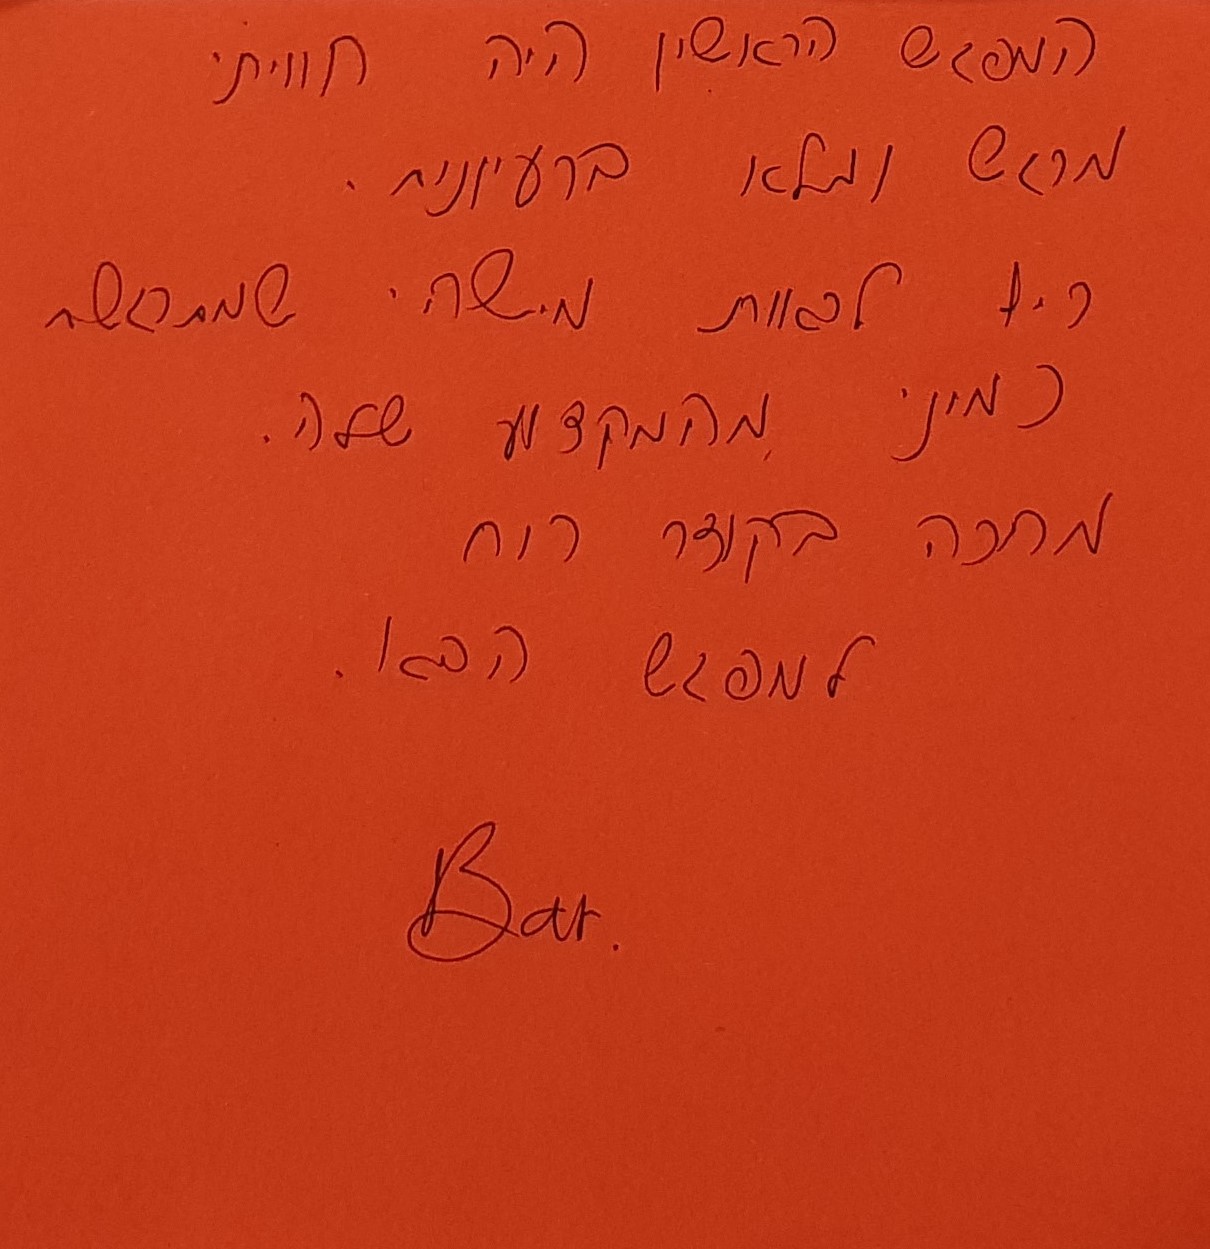 המפגש הראשון היה חוויתי
מרגש ומלא ברעיונות.
כיף לראות מישהי שמתרגשת
כמוני מהמקצוע שלה.
מחכה בקוצר רוח
למפגש הבא.
Bar.